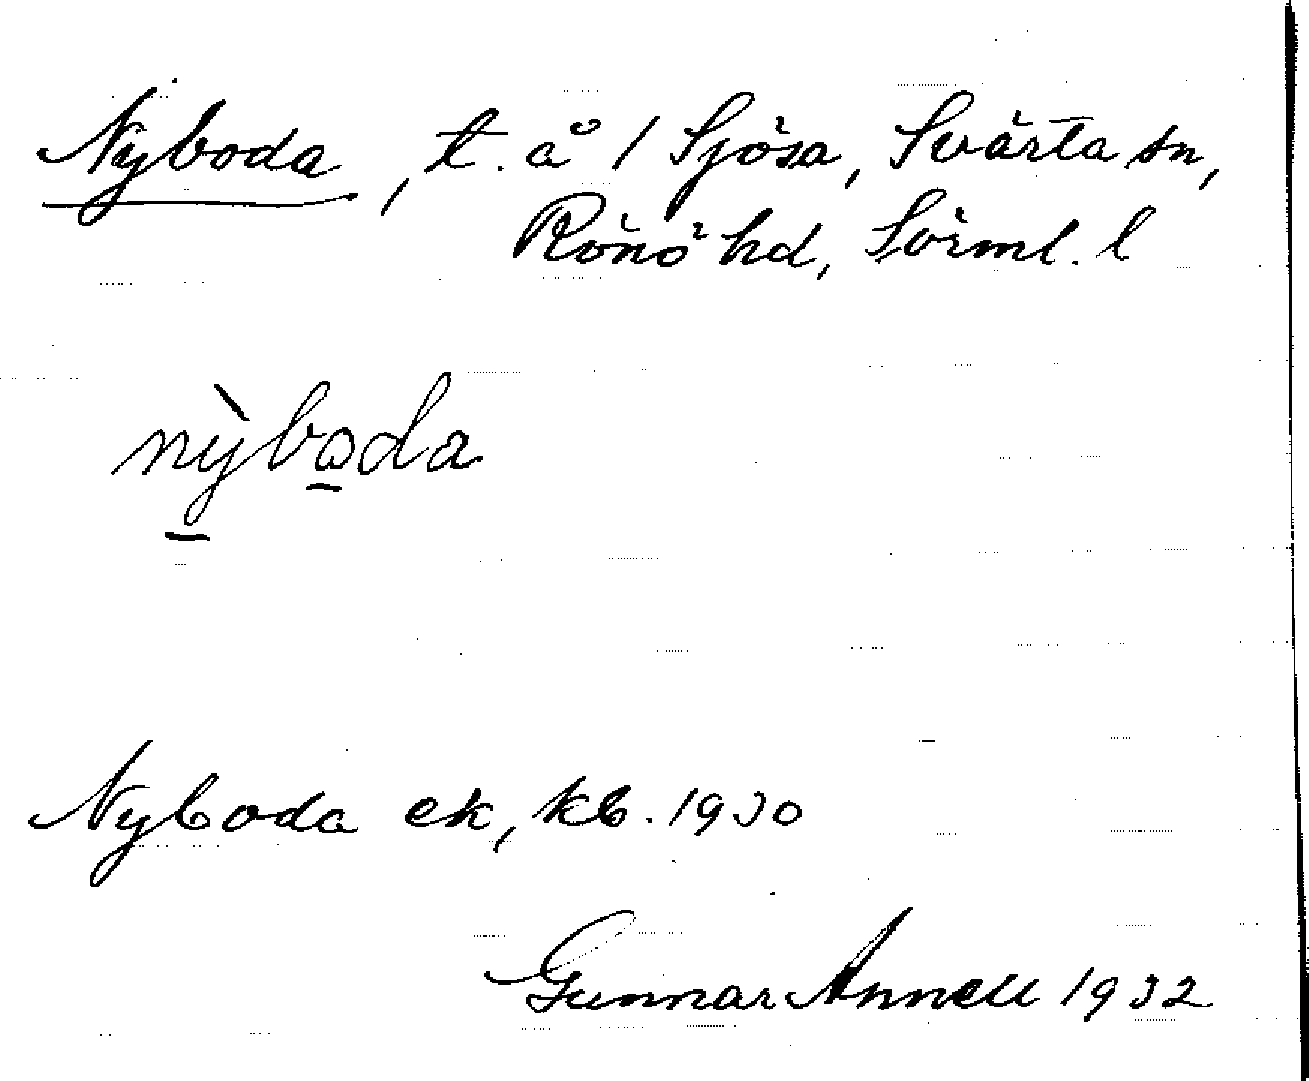 Nyboda, t. å 1 Sjösa, Svärta sn,
Rönö hd, Sörml. l
nỳboda
Nyboda ek, kb. 1930
Gunnar Annell 1932